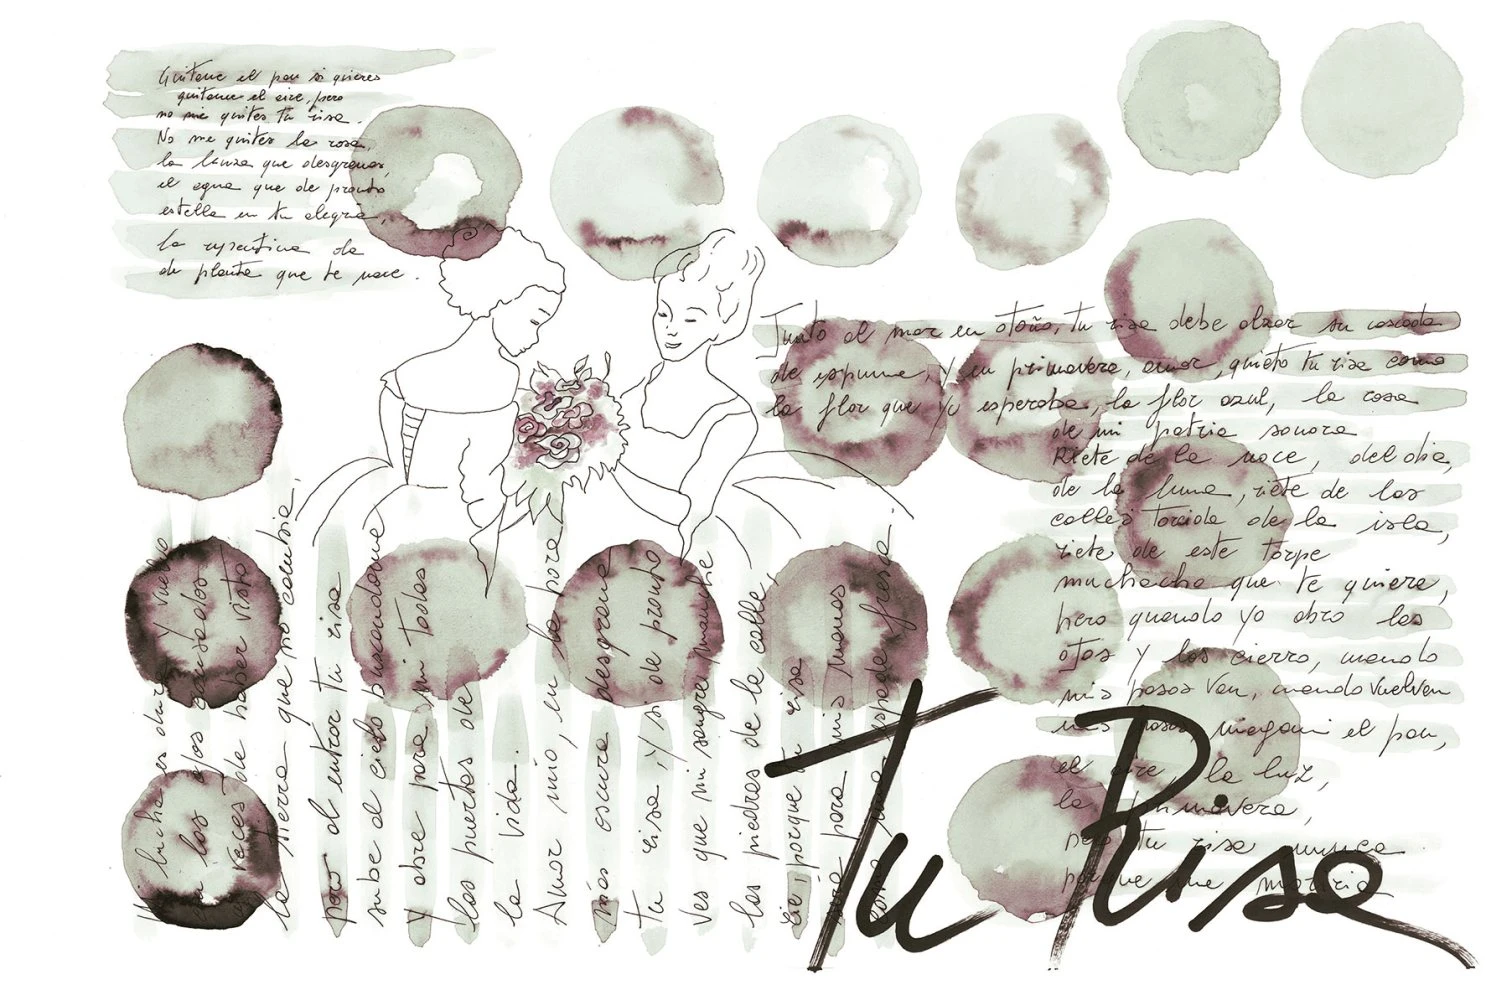 Quitame el pan si quieres
quitame el aire, pero
no me quites tu risa.
No me quites la rosa,
la lanza que desgranas,
el agua que de pronto
estalla en tu alegria,
la repentina ola
de planta que te nace.
Mi lucha es dura y vuelvo
los ojos cansados
a veces de haber visto
la tierra que no cambia.
pero al entrar tu risa
sube al cielo buscandome
y abre para mi todas
las puertas de
la vida.
Amor mio, en la hora
más oscura desgrana
tu risa, y si de pronto
ves que mi sangre manche
las piedras de la calle,
rie, porque tu risa
sera para mis manos
como espada fresca.
Junto al mar en otoño, tu risa debe alzar su cascada
de espuma, y en primavera, amor, quieto tu risa como
la flor que yo esperaba, la flor azul, la rosa
de mi patria sonora
Riete de la noce, del dia,
de la luna, riete de las
calles torcida de la isla,
riete de este torpe
muchacho que te quiere,
pero quando yo abro los
ojos y los cierro, cuando
mis pasos van, cuando vuelven
mis pasos, niegami el pan,
el aire, la luz,
la primavera,
pero tu risa nunca
porque me moriria
Tu Risa